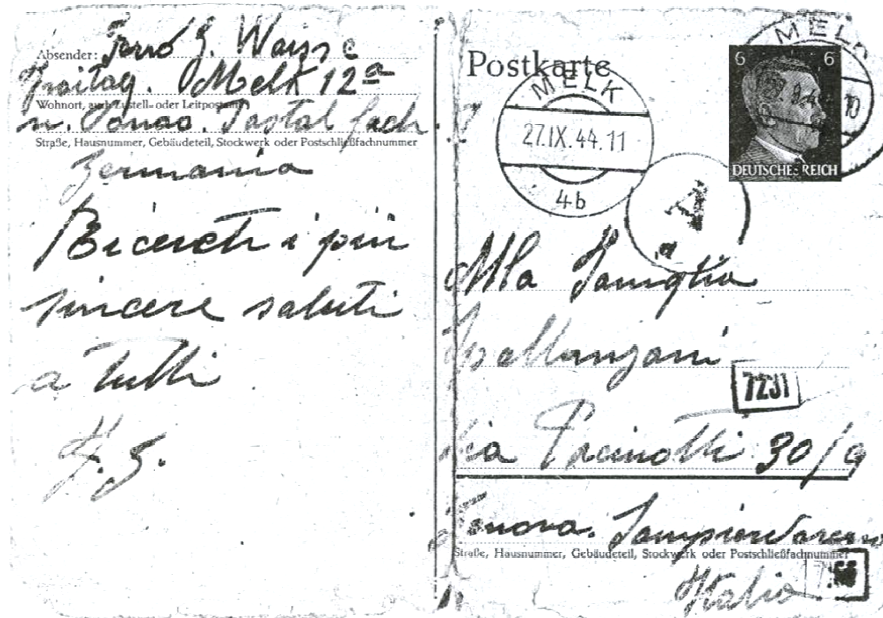 Absender: Ferro G. Waisse
Freitag. Melk 12a
Wohnort, auch Zustell- oder Leitpostamt
n. Donao. Postal fach. 7
Straße, Hausnummer, Gebäudeteil, Stockwerk oder Postschließfachnummer
Germania
Bicereti i più
sincere saluti
a tutti
F. G.
Postkarte
MELK
27.IX.44.11
4b
MELK
10
6 6
DEUTSCHES REICH
A
Alla Famiglia
Spallanzani
7231
Via Pacinotti 30/9
Genova. Sampierdarena
Straße, Hausnummer, Gebäudeteil, Stockwerk oder Postschließfachnummer
Italia